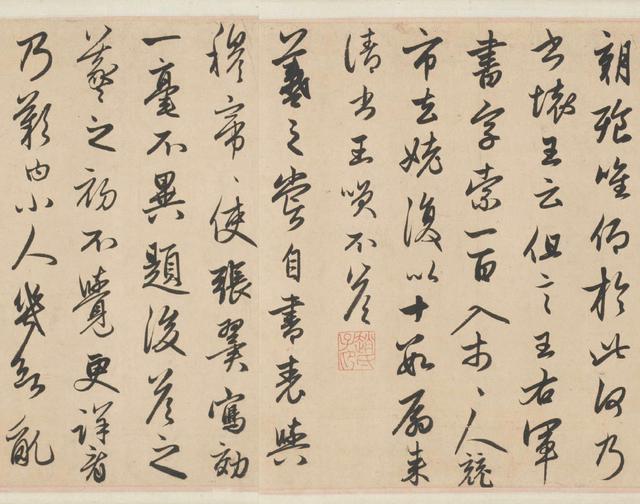 朝飧唯仰於此何乃
書壞王云但言王右軍
書字索一百入市〻人競
市去姥復以十數扇来
請書王咲不答
趙氏子昂
羲之嘗自書表與
穆帝〻使張翼寫効
一毫不異題後答之
羲之初不覺更詳看
乃歎曰小人幾欲亂